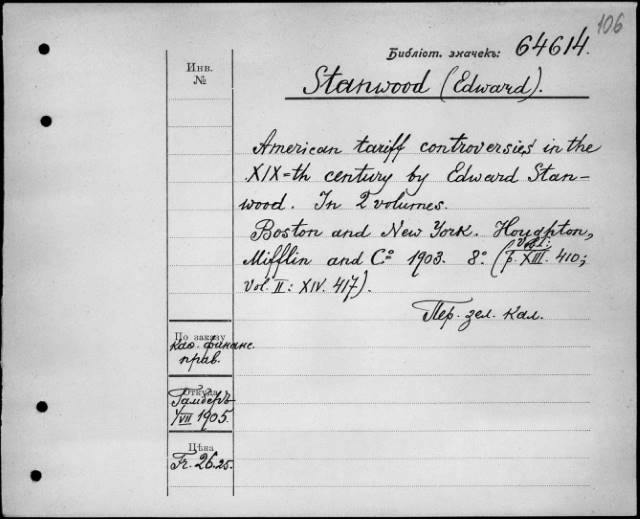 106
Библіот. значекъ: 64614.
Инв.
№
Stanwood (Edward).
American tariff controversies in the
XIX=th century by Edward Stan-
wood. In 2 volumes.
Boston and New York. Houghton,
Mifflin and Cº 1903. 8º. (Vol. I: p. XIII. 410;
Vol. II: XIV. 417).
Пер. зел. кал.
По заказу
каб. финанс.
прав.
Откуда
Гамберъ
1/VII 1905.
Цѣна
Fr. 26.25.